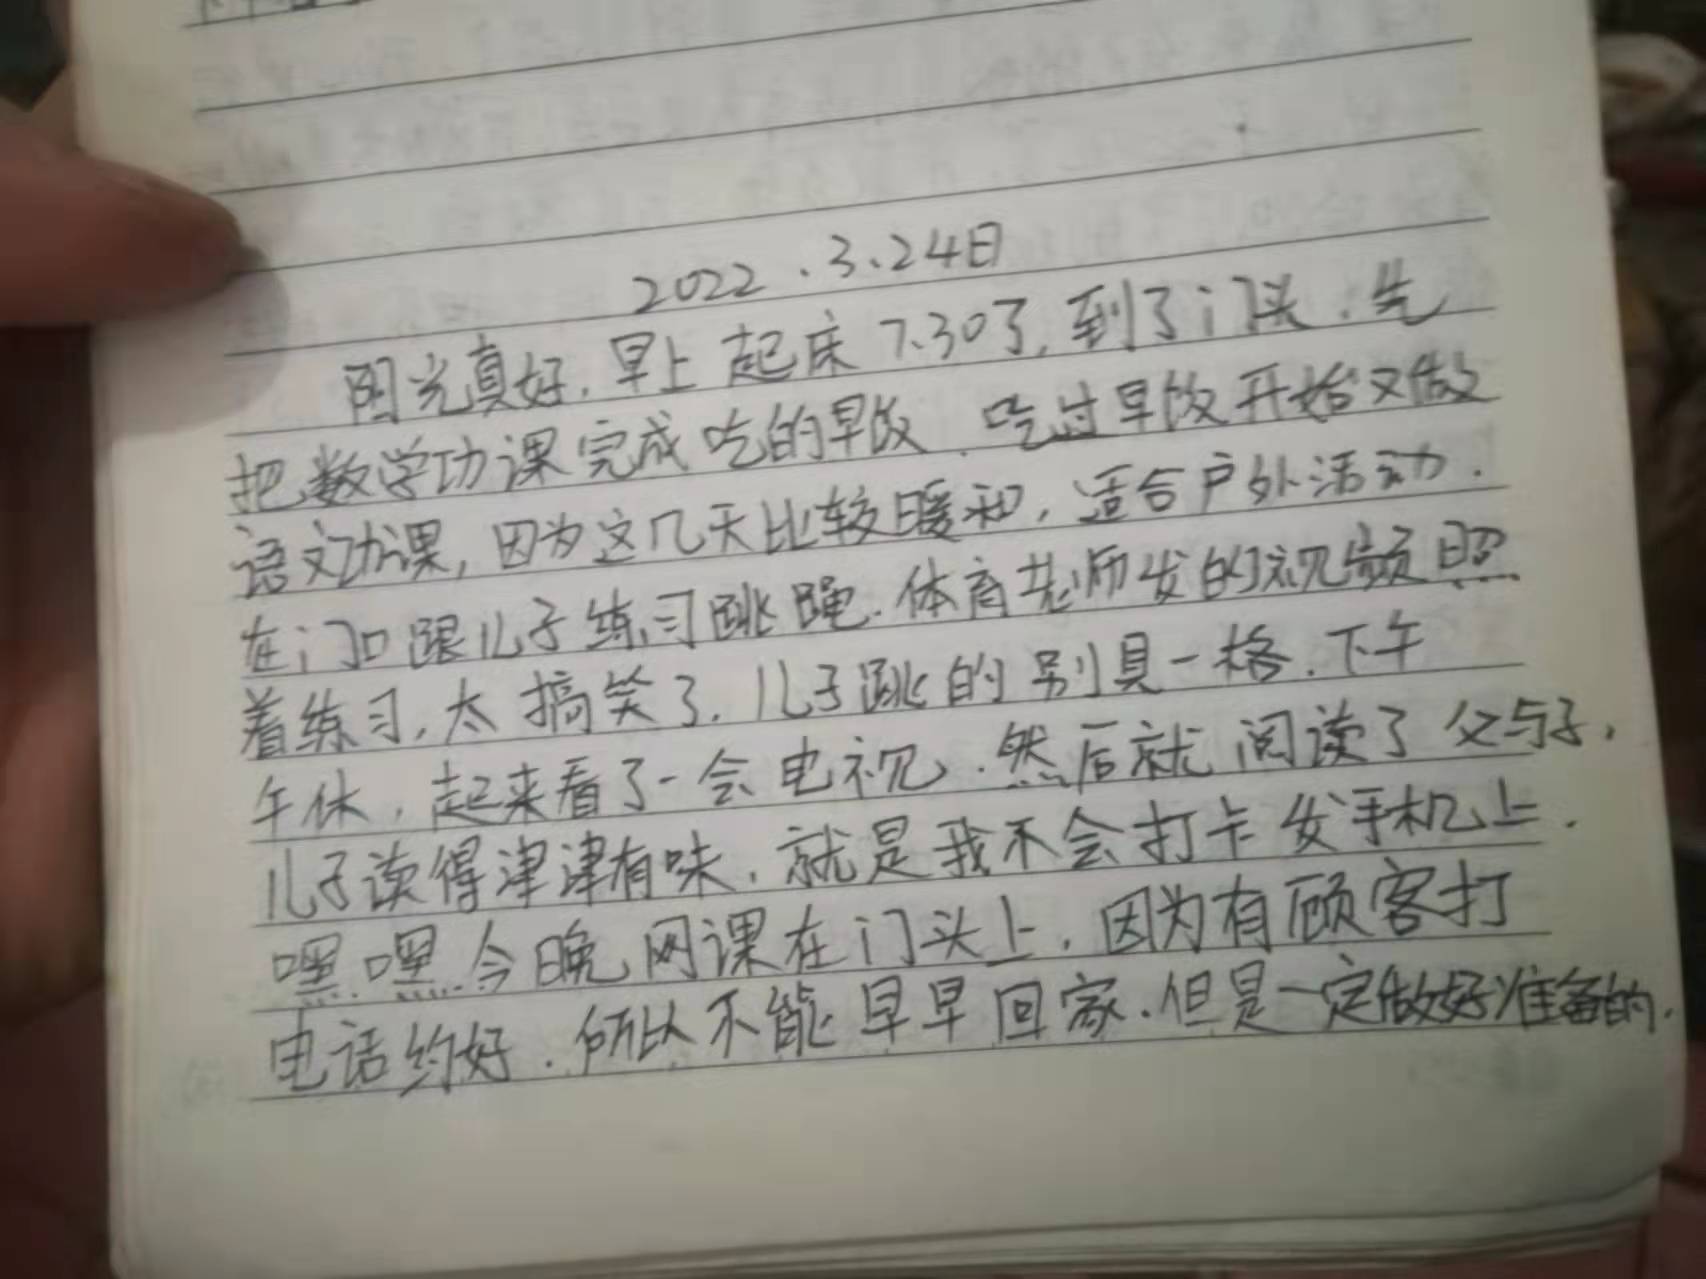 2022.3.24日
阳光真好.早上起床7.30了,到了门头.先
把数学功课完成吃的早饭.吃过早饭开始又做
语文功课,因为这几天比较暖和,适合户外活动.
在门口跟儿子练习跳绳.体育老师发的视频照
着练习,太搞笑了.儿子跳的别具一格.下午
午休,起来看了一会电视.然后就阅读了父与子,
儿子读得津津有味,就是我不会打卡发手机上.
嘿嘿.今晚网课在门头上,因为有顾客打
电话约好.所以不能早早回家.但是一定做好准备的.